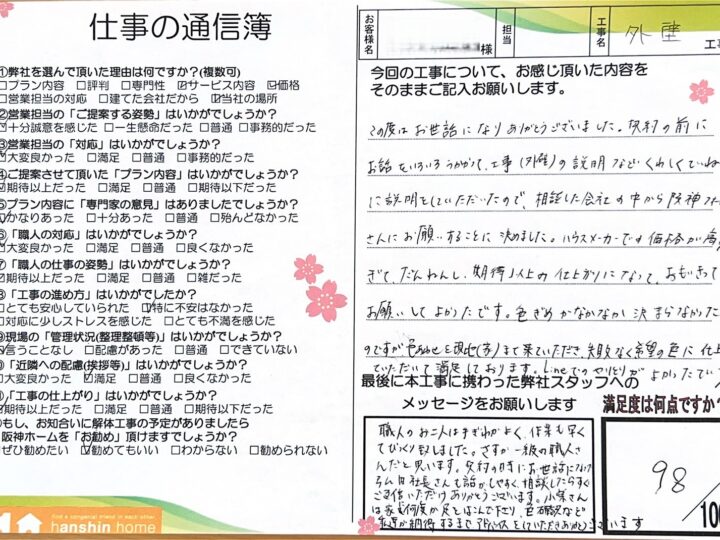 仕事の通信簿
①弊社を選んで頂いた理由は何ですか?(複数可)
□プラン内容 □評判 □専門性 ☑サービス内容 ☑価格
□営業担当の対応 □建てた会社だから ☑当社の場所
②営業担当の「ご提案する姿勢」はいかがでしょうか?
十分誠意を感じた □一生懸命だった □普通 □事務的だった
③営業担当の「対応」はいかがでしょうか?
大変良かった □満足 □普通 □事務的だった
④ご提案させて頂いた「プラン内容」はいかがでしょうか?
期待以上だった □満足 □普通 □期待以下だった
⑤プラン内容に「専門家の意見」はありましたでしょうか?
かなりあった □十分あった □普通 □殆んどなかった
⑥「職人の対応」はいかがでしょうか?
大変良かった □満足 □普通 □良くなかった
⑦「職人の仕事の姿勢」はいかがでしょうか?
期待以上だった □満足 □普通 □雑だった
「工事の進め方」はいかがでしたか?
□とても安心していられた ☑特に不安はなかった
□対応に少しストレスを感じた □とても不満を感じた
現場の「管理状況(整理整頓等)」はいかがでしょうか?
言うことなし □配慮があった □普通 □できていない
「近隣への配慮(挨拶等)」はいかがでしょうか?
□大変良かった ☑満足 □普通 □良くなかった
「工事の仕上がり」はいかがでしょうか?
期待以上だった □満足 □普通 □期待以下だった
もし、お知合いに解体工事の予定がありましたら
阪神ホームを「お勧め」頂けますでしょうか?
ぜひ勧めたい ☑勧めてもいい □わからない □勧められない
find a congenial friend in each other
hanshin home
お客様名 様 担当 工事名 外壁 工事
今回の工事について、お感じ頂いた内容を
そのままご記入お願いします。
この度はお世話になりありがとうございました。契約の前に
お話をいろいろうかがって、工事(外壁)の説明などくわしくていね
に説明をしていただいたので、相談した会社の中から阪神ホー
さんにお願いすることに決めました。ハウスメーカーですと価格が高
ぎて、だんねんし、期待以上の仕上がりになって、おもいきって
お願いしてよかったです。色ぎめがなかなか決まらなかった
のですが 色あわせを現地(家)まで来ていただき、失敗なく希望の色に仕上
ていただいて満足しております。Lineでのやりとりがよかったでい
最後に本工事に携わった弊社スタッフへの
メッセージをお願いします
職人のお二人はきぎわがよく、作業も早く
てびっくり致しました。さすが一級の職人さ
んだと思います。契約の時にお世話になり
社長さんも話がしやすく、相談したらすぐ
ご返信いただけありがとうございます。
家に何度か足をはこんで下さり、色石数など
納得するまで をしていただきありがとうございます
満足度は何点ですか?
98/100